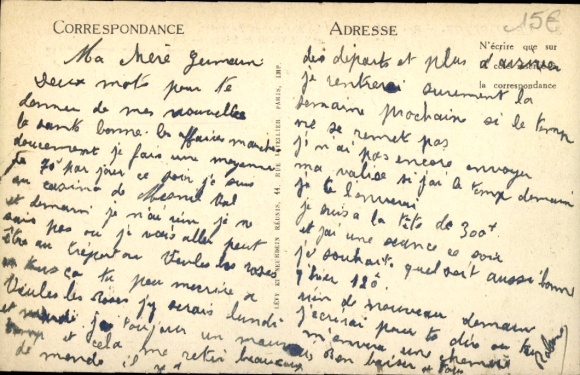 15€
CORRESPONDANCE
Ma chère Germaine
Deux mots pour te
donner de mes nouvelles
la santé bonne. les affaires marche
doucement je fais une moyenne
de 70f par jour ce soir je suis
au casino de Mesnil Val
et demain je n'ai rien je ne
sais pas ou je vais aller peut
être au tréport ou Veules les roses
en tous ça tu peu m'écrire a
Veules les Roses j'y serais lundi
et mardi j'ai toujours un mauvais
temp et cela me retir beaucoup
de monde
LÉVY ET NEURDEIN RÉUNIS, 44, RUE LETELLIER PARIS, IMP.
ADRESSE
N'écrire que sur
la correspondance
des départs et plus d'arriver
je rentrerai surement la
semaine prochain si le temp
ne se remet pas
j'n'ai pas encore envoyer
ma valise si j'ai le temp demain
je te l'enverrai
je suis a la tête de 300f
et j'ai une séance ce soir
je souhait quel soit aussi bonne
q'hier 120
rien de nouveau demain
j'écrirai pour te dire ou tu
m'envera une chemise
Bon baiser